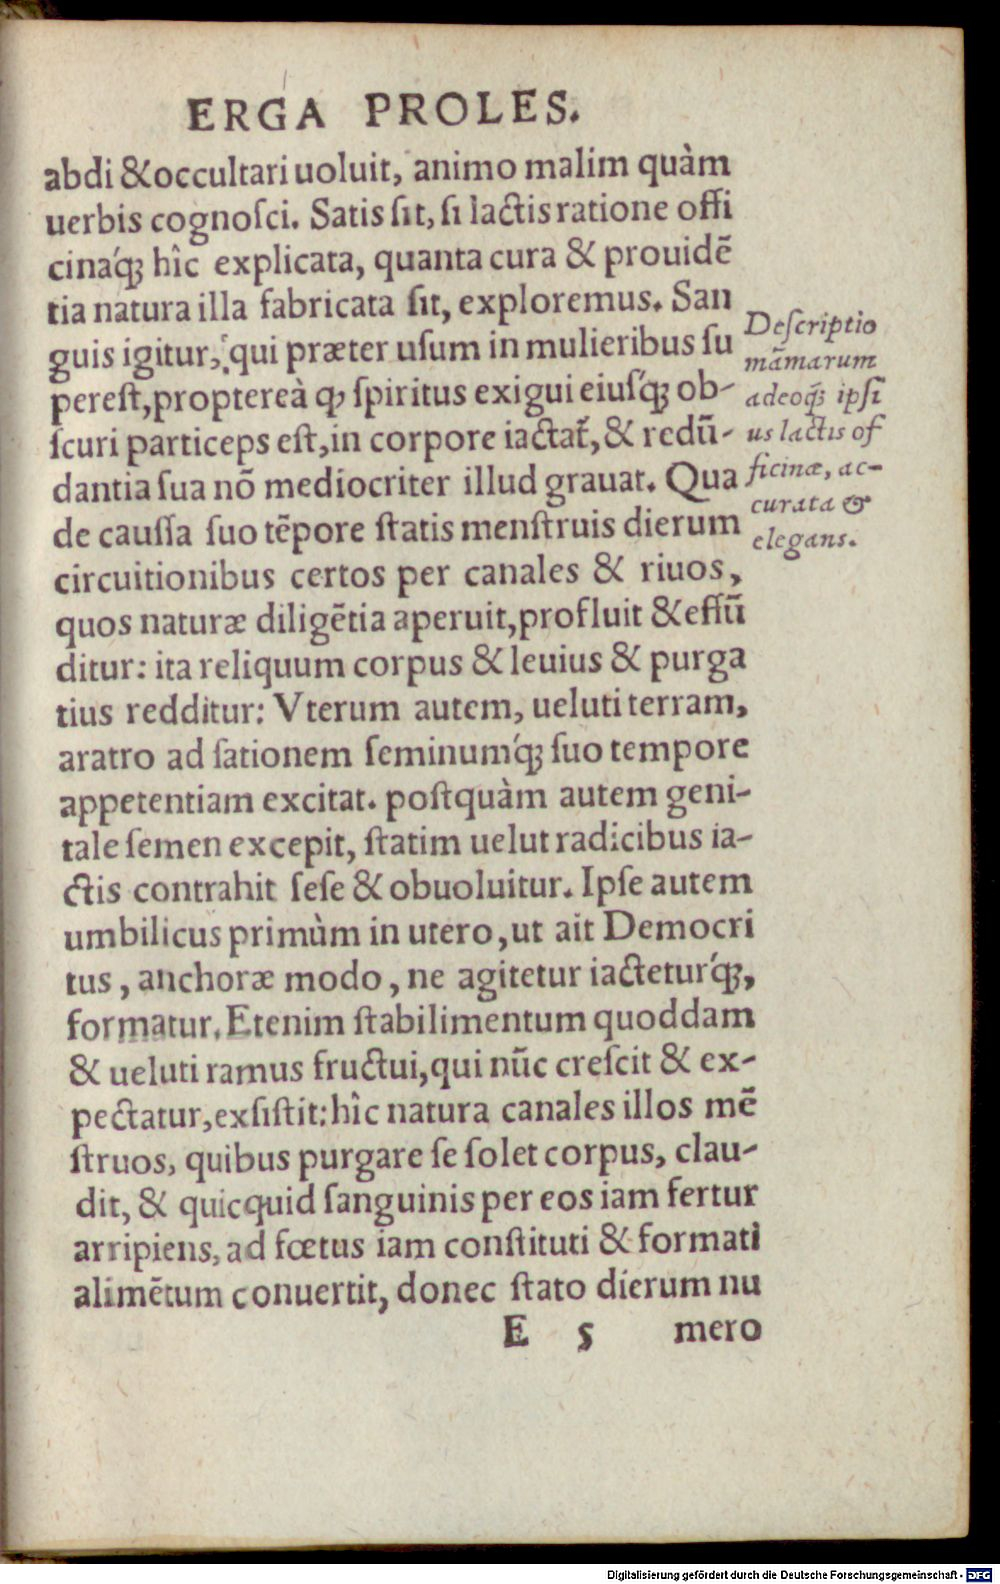 ERGA PROLES.
abdi &occultari uoluit, animo malim quàm
uerbis cognoſci. Satis ſit, ſi lactis ratione offi
cinaq́ꝫ hîc explicata, quanta cura & prouidẽ
tia natura illa fabricata ſit, exploremus. San
guis igitur, qui præter uſum in mulieribus ſu
pereſt, propterea̓̀ ꝙ ſpiritus exigui eiuſq́ꝫ ob-
ſcuri particeps eſt, in corpore iactat̃, & redũ-
dantia ſua nõ mediocriter illud grauat. Qua
de cauſſa ſuo tẽpore ſtatis menſtruis dierum
circuitionibus certos per canales & riuos,
quos naturæ diligẽtia aperuit, profluit &effũ
ditur: ita reliquum corpus & leuius & purga
tius redditur: Vterum autem, ueluti terram,
aratro ad ſationem ſeminumq́ꝫ ſuo tempore
appetentiam excitat. poſtquàm autem geni-
tale ſemen excepit, ſtatim uelut radicibus ia-
ctis contrahit ſeſe & obuoluitur. Ipſe autem
umbilicus primùm in utero, ut ait Democri
tus, anchoræ modo, ne agitetur iacteturq́ꝫ,
formatur. Etenim ſtabilimentum quoddam
& ueluti ramus fructui, qui nũc creſcit & ex-
pectatur, exſiſtit: hîc natura canales illos mẽ
ſtruos, quibus purgare ſe ſolet corpus, clau-
dit, & quicquid ſanguinis per eos iam fertur
arripiens, ad fœtus iam conſtituti & formati
alimẽtum conuertit, donec ſtato dierum nu
E 5 mero
Deſcriptio
mãmarum
adeoq́ꝫ ipſi
us lactis of
ficinæ, ac-
curata &
elegans.
Digitalisierung gefördert durch die Deutsche Forschungsgemeinschaft - DFG